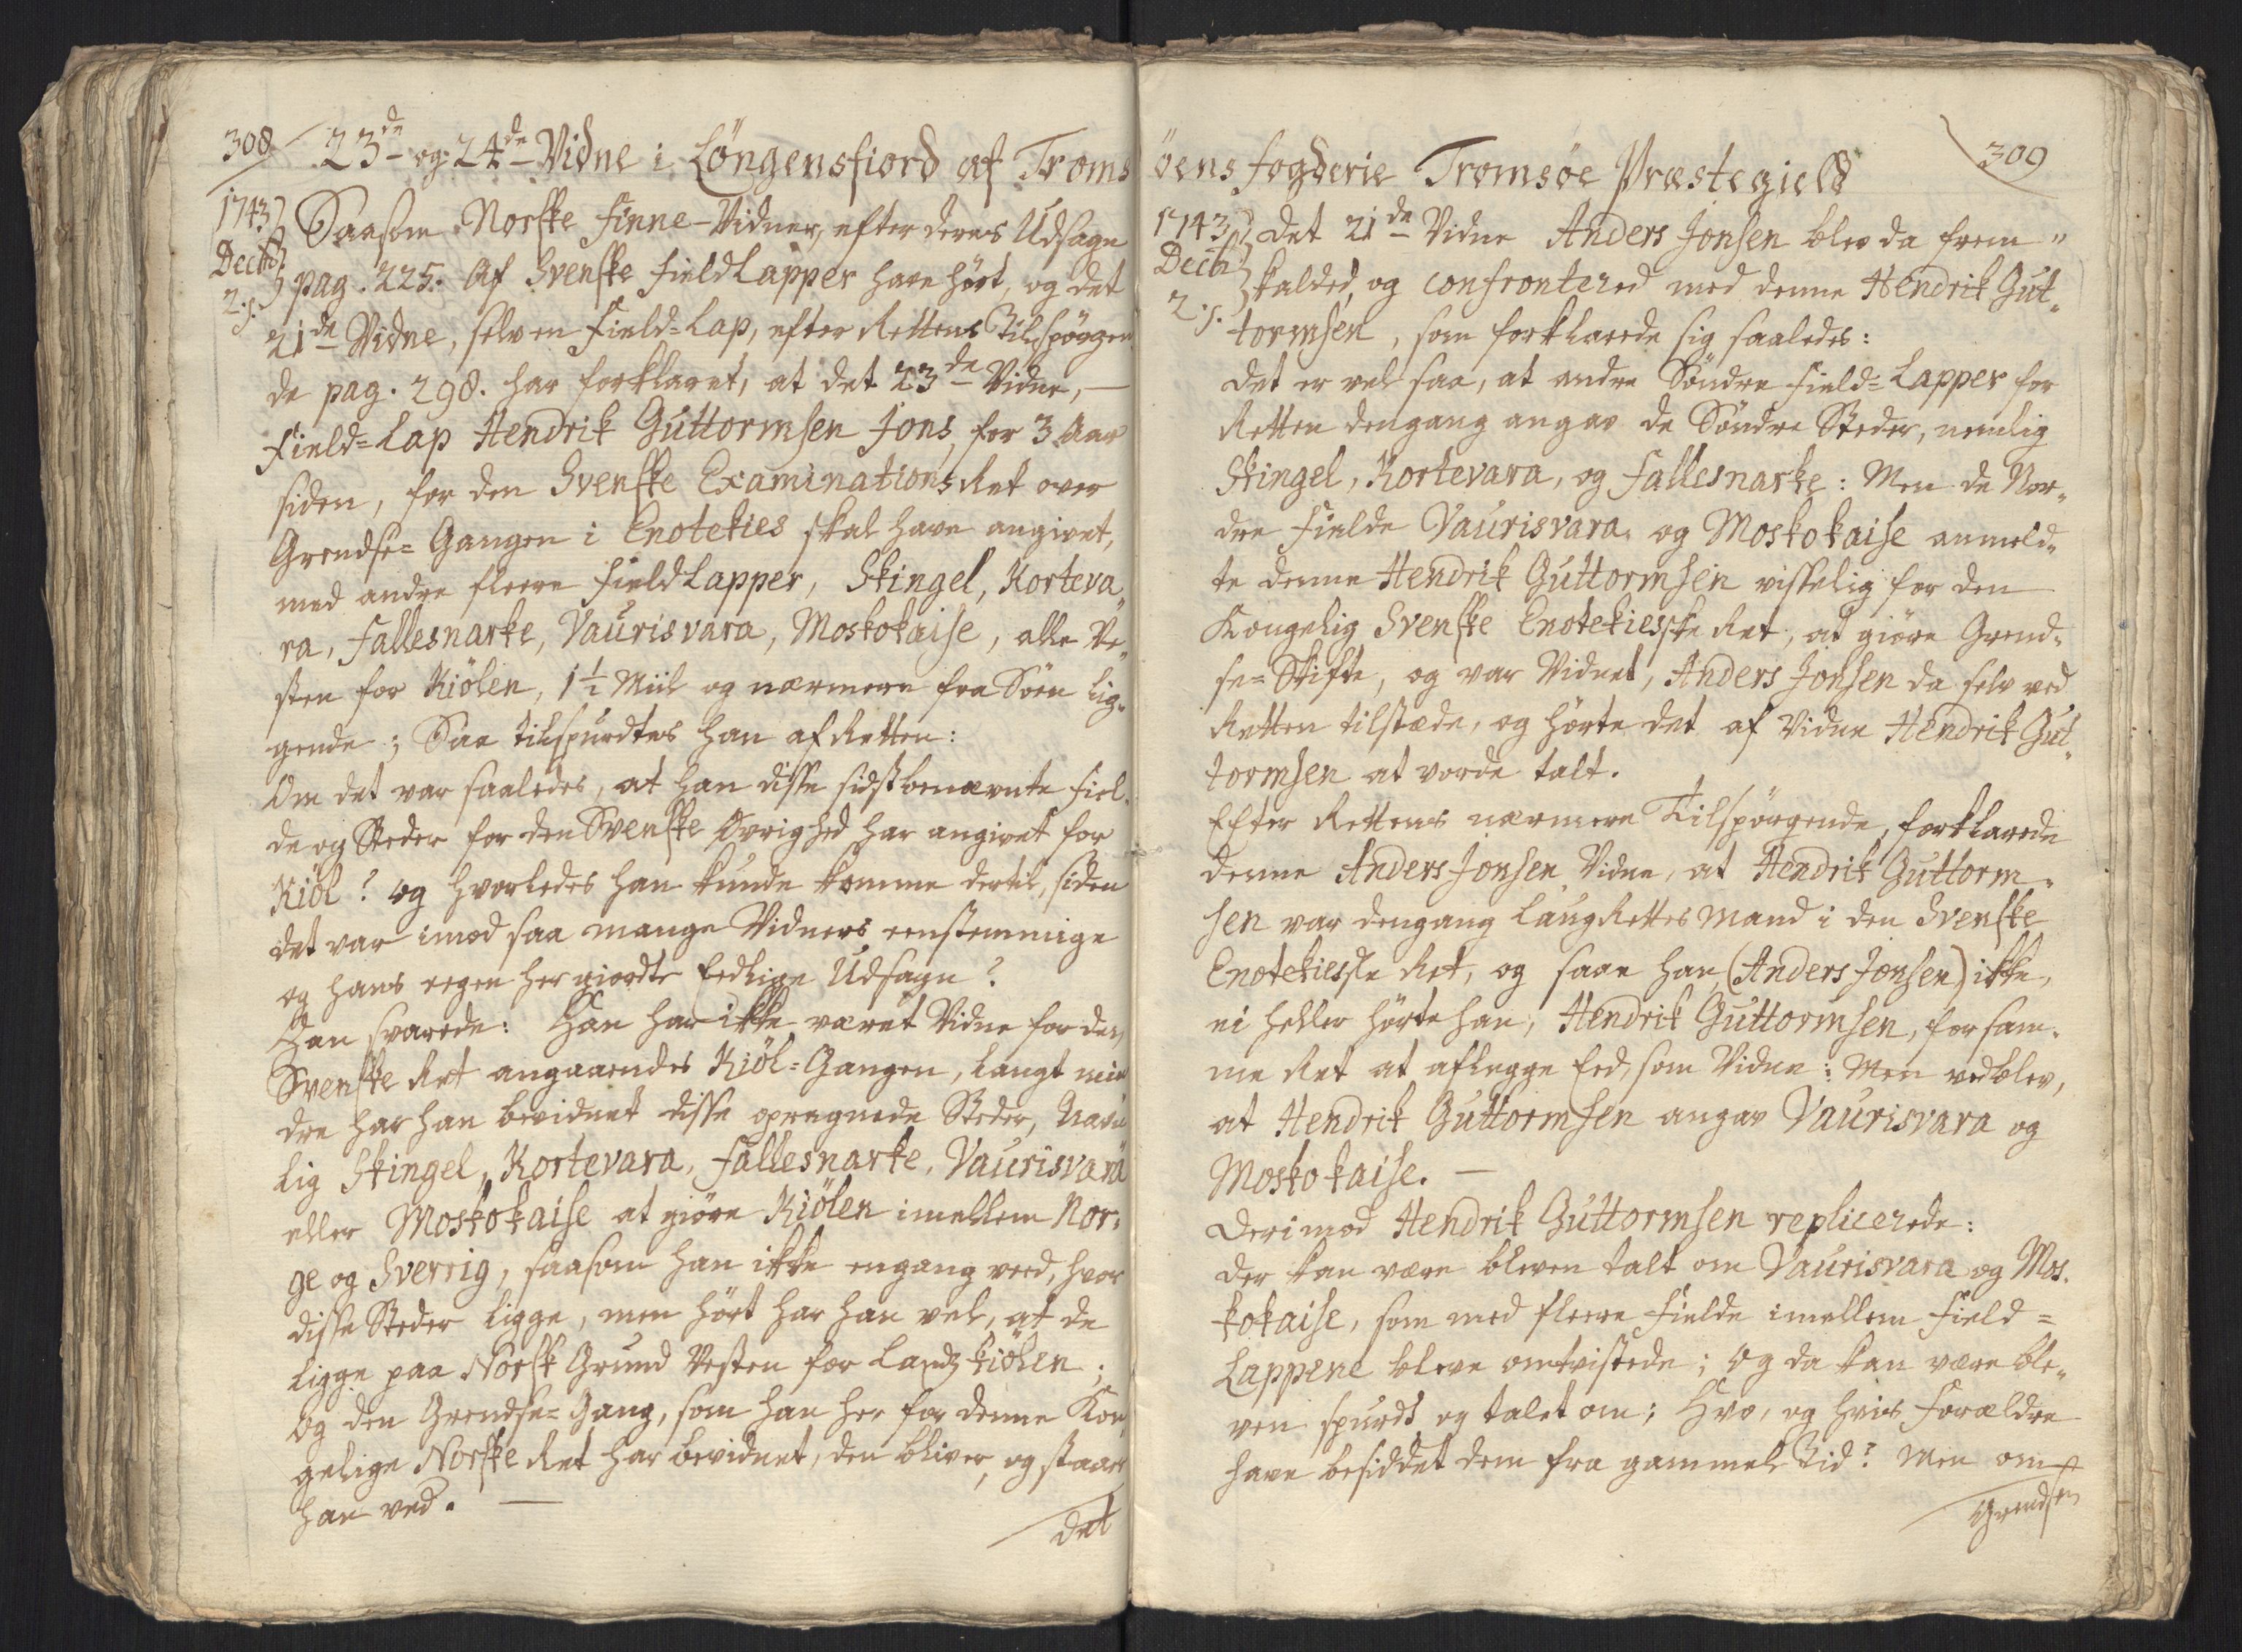 308
23de og 24de Vidne i Löngensfiord af Troms
1743
Decbr
2. s.
Saasom Norske Finne-Vidner, efter deres Udsagn
pag. 225. Af Svenske FieldLapper have hört, og det
21de Vidne, selv en Field=Lap, efter Rettens Tilspörgen
de pag. 298. har forklaret, at det 23de Vidne, —
Field=Lap Hendrik Guttormsen Jons, for 3 Aar
siden, for den Svenske Examinations Ret over
Grendse=Gangen i Enotekies skal have angivet,
med andre fleere FieldLapper, Skingel, Korteva„
ra, Fallesnarke, Vaurisvara, Moskokaise, alle Ve„
sten for Kiölen, 1½ Miil og nærmere fra Söen lig„
gende; Saa tilspurdtes han af Retten:
Om det var saaledes, at han disse sidstbenævnte Fiel„
de og Steder for den Svenske Øvrighed har angivet for
Kiöl? og hvorledes han kunde komme dertil, siden
det var imod saa mange Vidners eenstemmige
og hans egen her giordte Eedlige Udsagn?
Han svarede: Han har ikke været Vidne for den
Svenske Ret angaaendes Kiöl=Gangen, langt min
dre har han bevidnet disse opregnede Steder, Navn
lig Skingel, Kortevara, Fallesnarke, Vaurisvara
eller Moskokaise at giöre Kiölen imellem Nor„
ge og Sverrig, saasom han ikke engang veed, hvor
disse Steder ligge, men hört har han vel, at de
ligge paa Norsk Grund Vesten for Landz kiölen;
Og den Grendse=Gang, som han her for denne Kon„
gelige Norske Ret har bevidnet, den bliver, og staaer
han ved. —
Det
309
öens fogderie Tromsøe Præstegield
1743
Decbr
2. s.
Det 21de Vidne Anders Jonsen blev da frem„
kalded, og confrontered med denne Hendrik Gut„
tormsen, som forklarede sig saaledes:
Det er vel saa, at andre Söndre Field=Lapper for
Retten dengang angav de Söndre Steder, nemlig
Skingel, Kortevara, og Fallesnarke: Men de Nor„
dre Fielde Vaurisvara og Moskokaise anmeld„
te denne Hendrik Guttormsen visselig for den
Kongelig Svenske Enotekieske Ret, at giöre Grend„
se=Skifte, og var Vidnet, Anders Jonsen da selv ved
Retten tilstæde, og hörte det af Vidne Hendrik Gut„
tormsen at vorde talt.
Efter Rettens nærmere Tilspörgende, forklarede
denne Anders Jonsen Vidne, at Hendrik Guttorm„
sen var dengang LaugRettes Mand i den Svenske
Enotekieske Ret, og saae han (Anders Jonsen) ikke,
ei heller hörte han, Hendrik Guttormsen, for sam„
me Ret at aflegge Eed, som Vidne: Men vedblev,
at Hendrik Guttormsen angav Vaurisvara og
Moskokaise. —
Derimod Hendrik Guttormsen replicerede:
Der kan være bleven talt om Vaurisvara og Mos„
kokaise, som med fleere Fielde imellem Field=
Lappene bleve omtvistede; Og da kan være ble„
ven spurdt og talet om; Hvo, og hvis Forældre
have besiddet dem fra gammel Tid? Men om
Grendsen